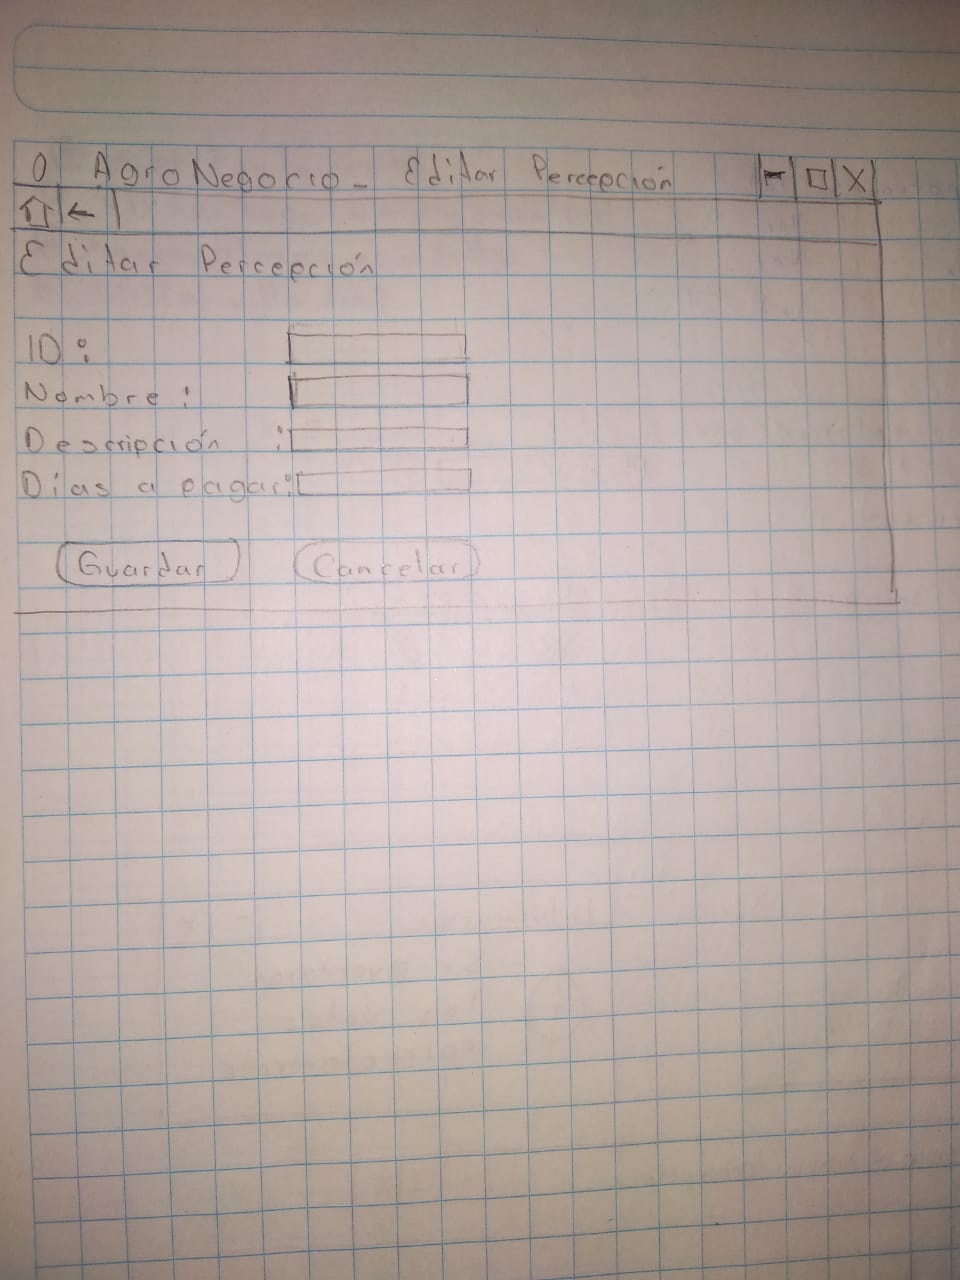 O AgroNegocio - Editar Percepción - □ X
←
Editar Percepción
ID:
Nombre:
Descripción :
Días a pagar:
Guardar Cancelar